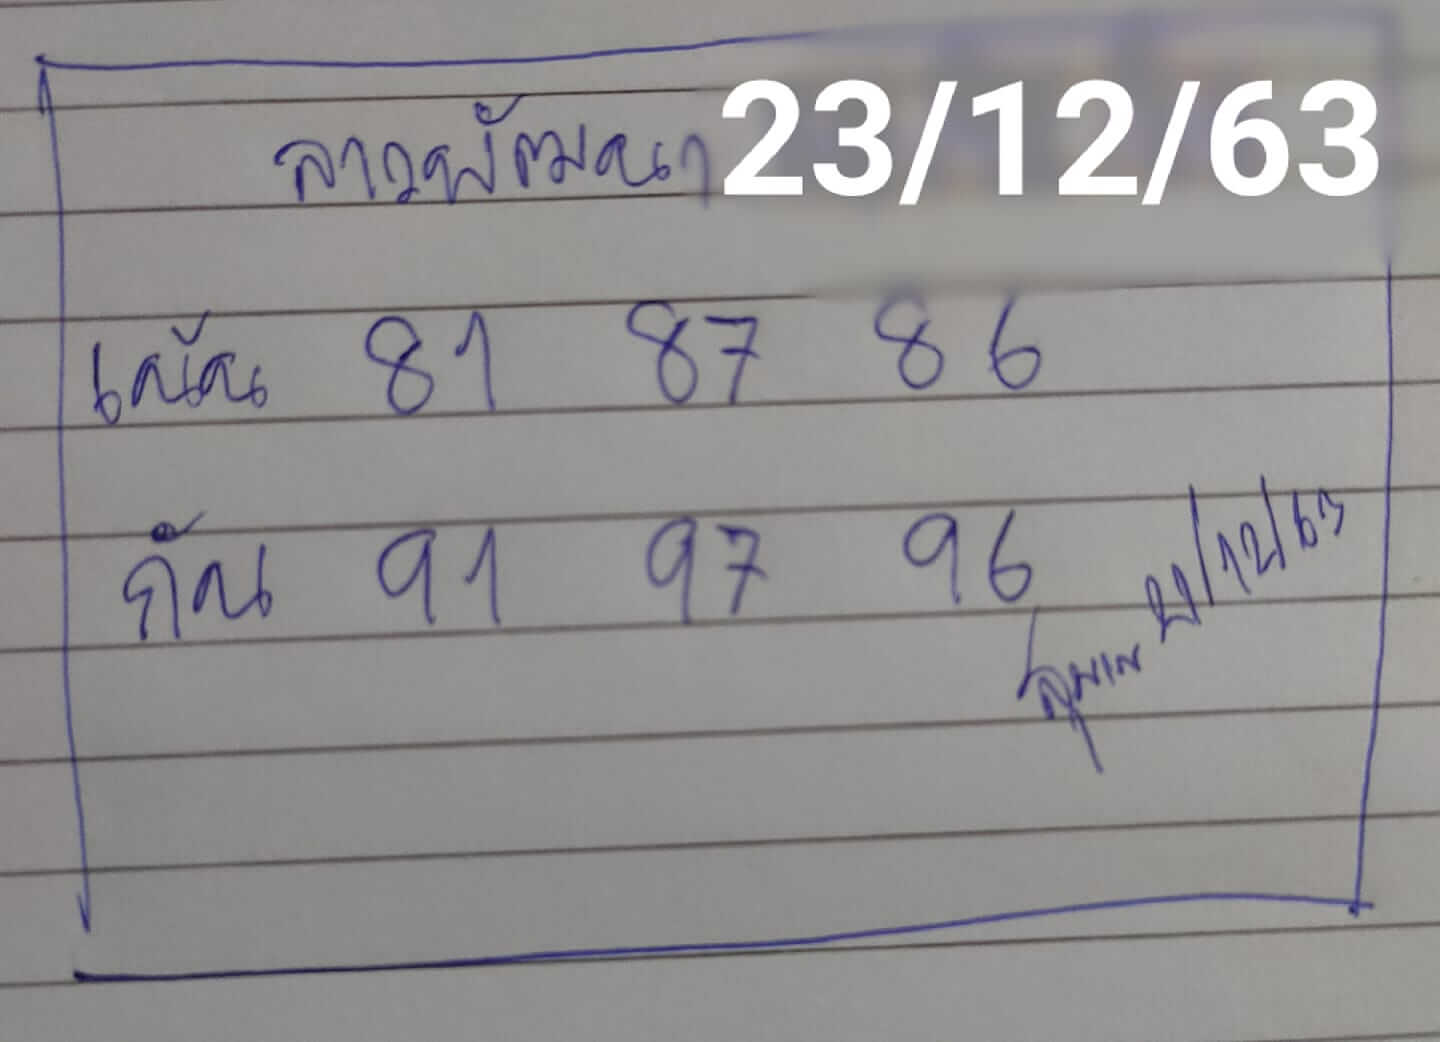 ลาวพัฒนา 23/12/63
เน้น 81 87 86
กัน 91 97 96
21/12/63